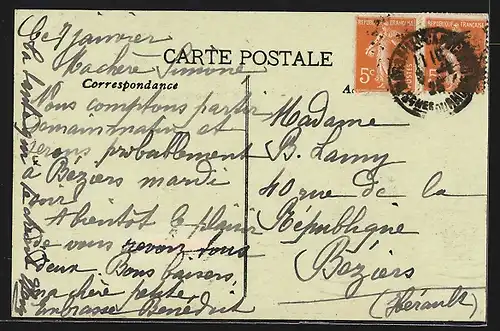 Ce 7 janvier
CARTE POSTALE
Ma chère Simone
Correspondance
Nous comptons partir
demain matin et
serons probablement
à Béziers mardi
soir
A bientôt le plaisir
de vous revoir tous
deux. Bons baisers,
ma chère petite,
embrasse Bénédict
REPUBLIQUE FRANÇAISE
5c
POSTES
Madame
B. Lamy
40 rue de la
République
Béziers
(Hérault)